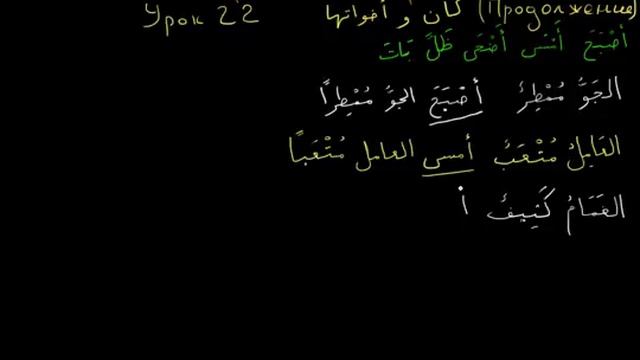 Урок 22 كان و أخواتها (Продолжение)
أَصْبَحَ أَمْسَى أَضْحَى ظَلَّ بَاتَ
الجَوُّ مُمْطِرٌ أَصْبَحَ الجوُّ مُمْطِرًا
العَامِلُ مُتْعَبٌ أمسى العامل مُتْعَبًا
الغَمَامُ كَثِيفٌ أ